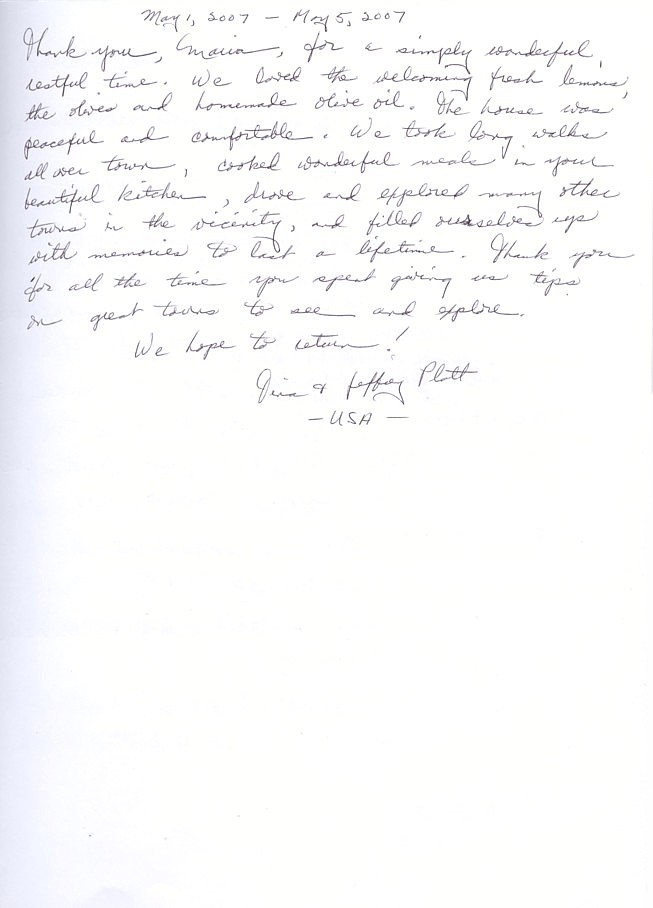 May 1, 2007 – May 5, 2007
Thank you, Maria, for a simply wonderful,
restful time. We loved the welcoming fresh lemons,
the olives and homemade olive oil. The house was
peaceful and comfortable. We took long walks
all over town, cooked wonderful meals in your
beautiful kitchen, drove and explored many other
towns in the vicinity, and filled ourselves up
with memories to last a lifetime. Thank you
for all the time you spent giving us tips
on great towns to see and explore.
We hope to return!
& Jeffrey Platt
– USA –